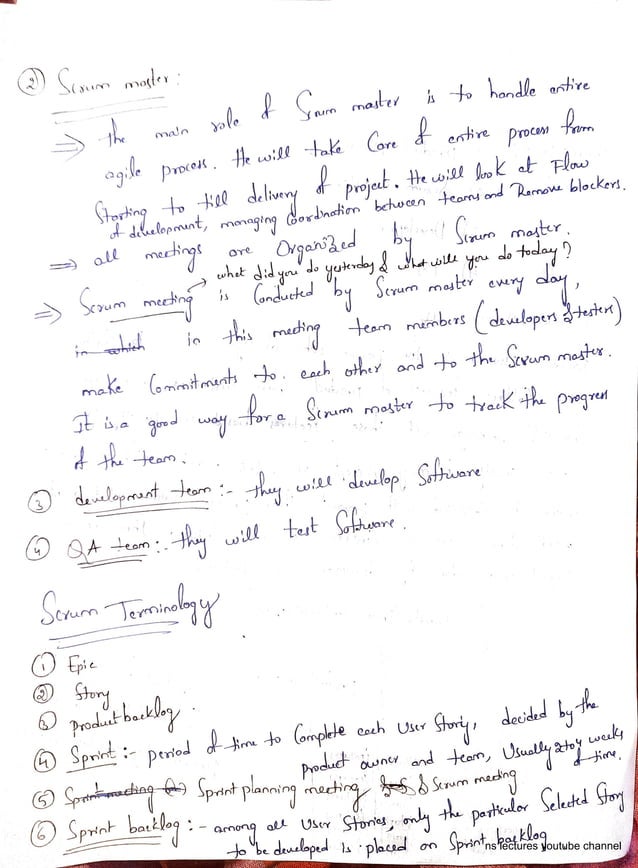 ② Scrum master:
⇒ the main role of Srum master is to handle entire
agile process. He will take Care of entire process from
Starting to till delivery of project. He will look at Flow
of development, managing Coordination between teams and Remove blockers.
⇒ all meetings are Organized by Srum master.
→ what did you do yesterday & what will you do today?
⇒ Scrum meeting is Conducted by Scrum master every day,
in which in this meeting team members (developers & testers)
make Commitments to each other and to the Scrum master.
It is a good way for a Scrum master to track the progress
of the team.
③ development team :- they will develop Software
④ QA team :- they will test Software.
Scrum Terminology
① Epic
② Story
③ product backlog
④ Sprint :- period of time to Complete each User Story, decided by the
product owner and team, Usually 2 to 4 weeks
of time.
⑤ Sprint meeting Sprint planning meeting & Scrum meeting
⑥ Sprint backlog :- among all User Stories, only the particular Selected Story
to be developed is placed on Sprint backlog
ns lectures youtube channel